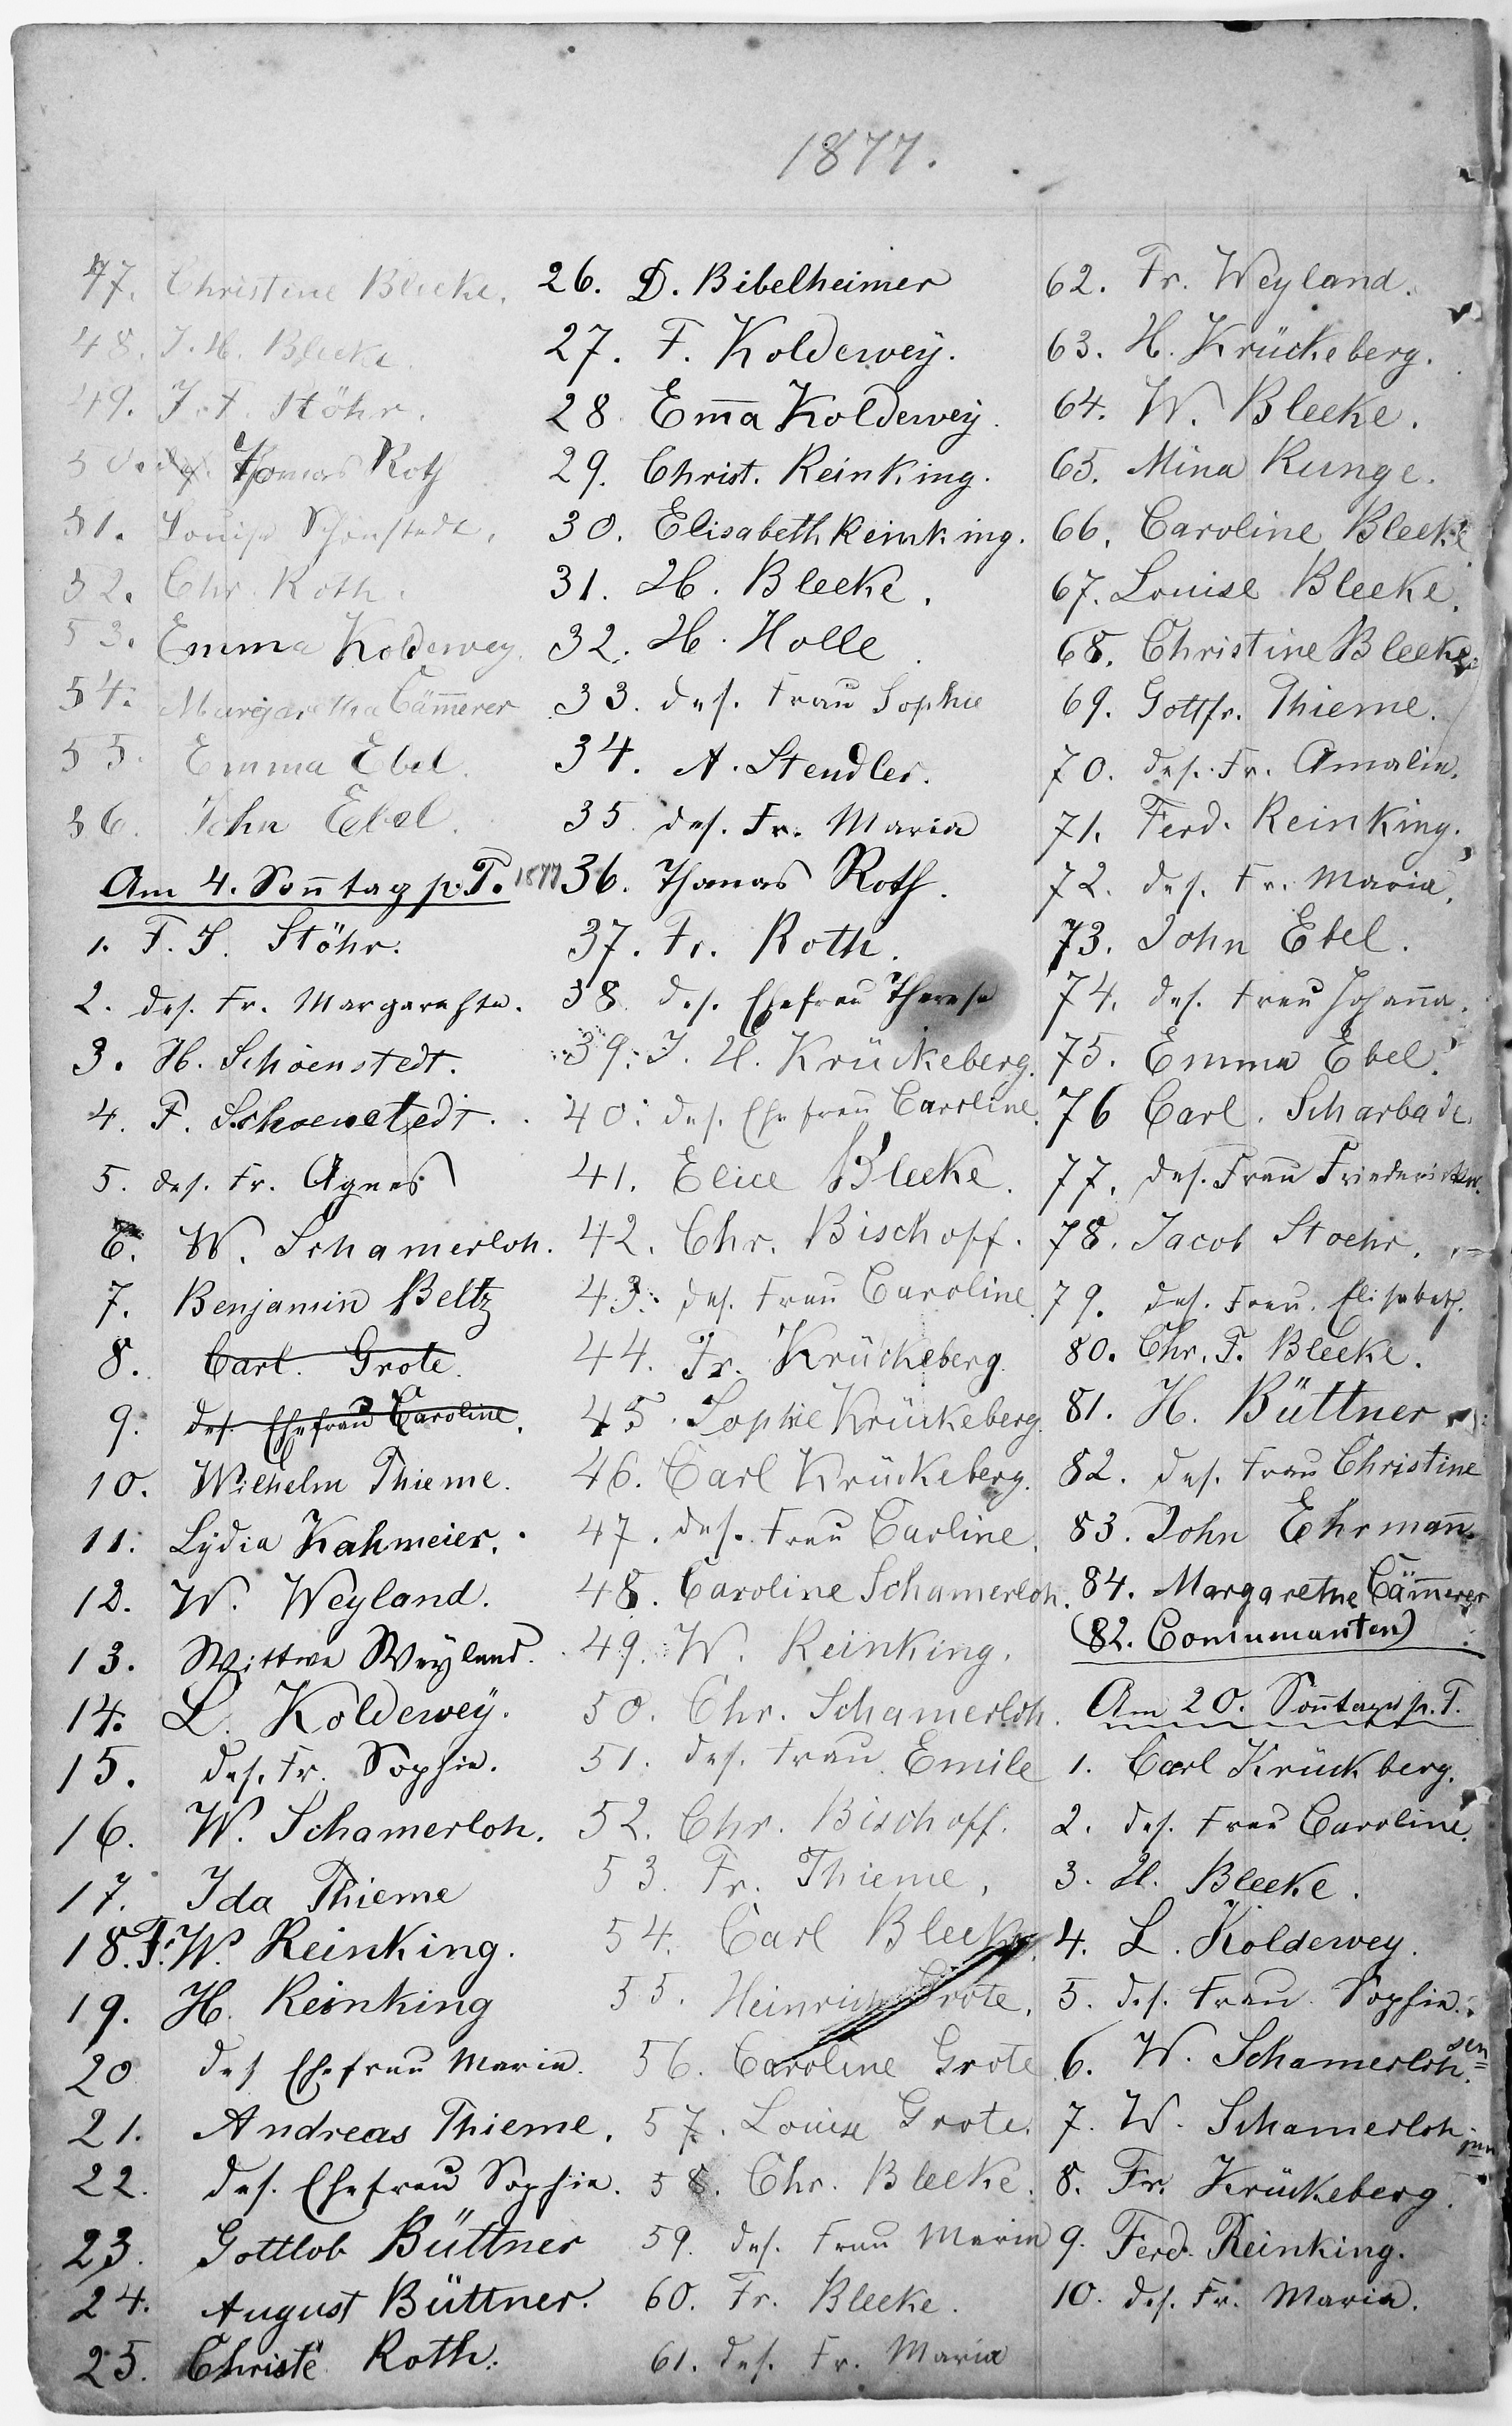 1877.
47. Christine Bleeke.
48. J. H. Bleeke.
49. J. F. Stöhr.
50. Thomas Roth
51. Louise Schönstedt.
52. Chr. Roth.
53. Emma Koldewey.
54. Margaretha Cäm̄erer
55. Emma Ebel.
56. John Ebel.
Am 4. Son̄tag p. T. 1877
1. F. J. Stöhr.
2. des. Fr. Margarethe.
3. H. Schoenstedt.
4. F. Schoenstedt.
5. des. Fr. Agnes
6. W. Schamerloh.
7. Benjamin Beltz
8. Carl. Grote.
9. des. Ehefrau Caroline.
10. Wilhelm Thieme.
11. Lydia Kahmeier.
12. W. Weyland.
13. Wittwe Weyland.
14. L. Koldewey.
15. des. Fr. Sophie.
16. W. Schamerloh.
17. Ida Thieme
18. F. W. Reinking.
19. H. Reinking
20 des Ehefrau Maria.
21. Andreas Thieme.
22. des. Ehefrau Sophie.
23. Gottlob Büttner
24. August Büttner.
25. Christ. Roth.
26. D. Bibelheimer
27. F. Koldewey.
28. Em̄a Koldewey.
29. Christ. Reinking.
30. Elisabeth Reinking.
31. H. Bleeke.
32. H. Holle
33. des. Frau Sophie
34. A. Stendler.
35. des. Fr. Maria
36. Thomas Roth.
37. Fr. Roth.
38. des. Ehefrau Therese
39. J. H. Krückeberg.
40. des. Ehefrau Caroline.
41. Elice Bleeke.
42. Chr. Bischoff.
43. des. Frau Caroline
44. Fr. Krückeberg.
45. Sophie Krückeberg.
46. Carl Krückeberg.
47. des. Frau Carline.
48. Caroline Schamerloh.
49. W. Reinking.
50. Chr. Schamerloh.
51. des. Frau Emile
52. Chr. Bischoff.
53. Fr. Thieme.
54. Carl Bleeke.
55. Heinrich Grote.
56. Caroline Grote
57. Louise Grote.
58. Chr. Bleeke.
59. des. Frau Maria
60. Fr. Bleeke.
61. des. Fr. Maria
62. Fr. Weyland.
63. H. Krückeberg.
64. W. Bleeke.
65. Mina Runge.
66. Caroline Bleeke
67. Louise Bleeke.
68. Christine Bleeke
69. Gottfr. Thieme.
70. des. Fr. Amalie.
71. Ferd. Reinking.
72. des. Fr. Maria.
73. John Ebel.
74. des. Frau Johan̄a.
75. Emma Ebel.
76 Carl. Scharbade.
77. des. Frau Friederike.
78. Jacob Stoehr.
79. des. Frau. Elisabeth.
80. Chr. F. Bleeke.
81. H. Büttner
82. des. Frau Christine
83. John Ehrman̄.
84. Margarethe Cäm̄erer
(82. Com̄unicanten)
Am 20. Son̄tage p. T.
1. Carl Krückberg.
2. des. Frau Caroline.
3. H. Bleeke.
4. L. Koldewey.
5. des. Frau Sophie.
6. W. Schamerloh. sen
7. W. Schamerloh. jun
8. Fr. Krückeberg.
9. Ferd. Reinking.
10. des. Fr. Maria.